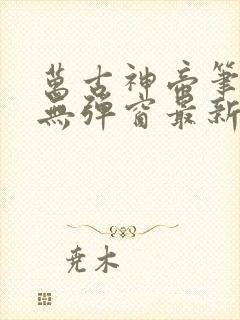 萬古神帝筆
無彈窗最新
尧木